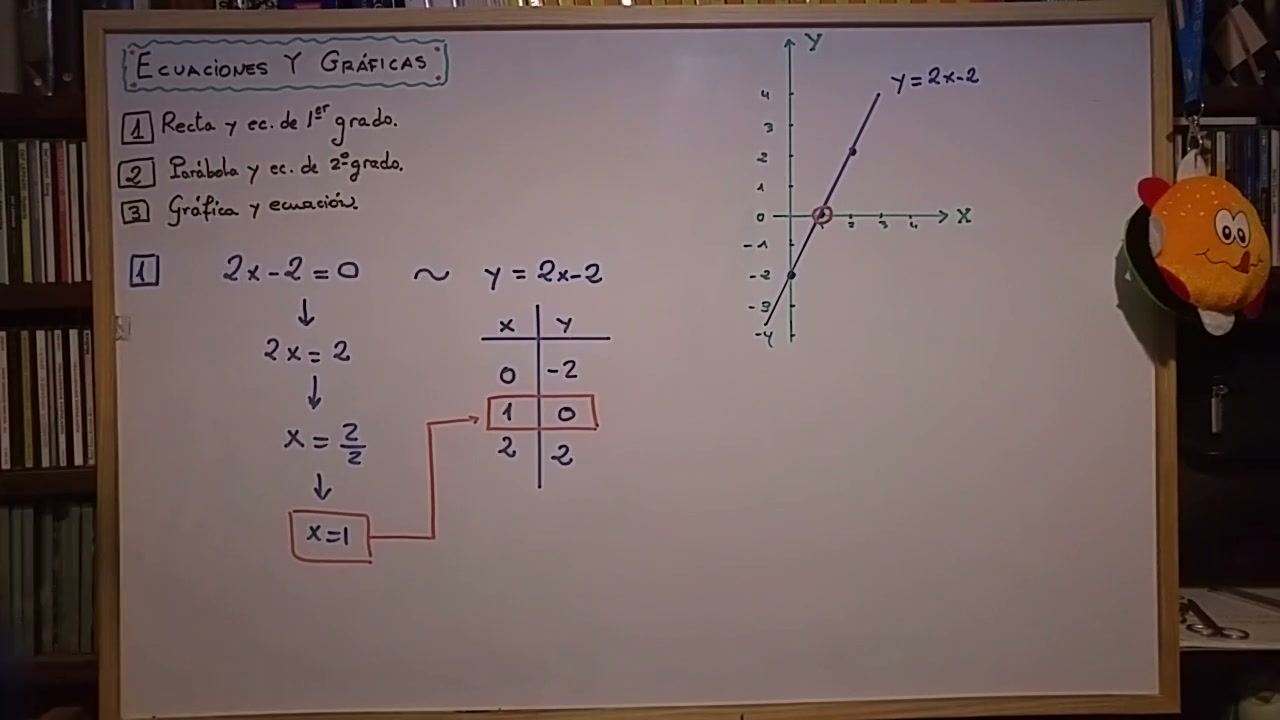 ECUACIONES Y GRÁFICAS
1 Recta y ec. de 1er grado.
2 Parábola y ec. de 2º grado.
3 Gráfica y ecuación.
1 2x-2=0 ~ y=2x-2
2x=2
x=2/2
x=1
x y
0 -2
1 0
2 2
Y
y=2x-2
4
3
2
1
0
-1
-2
-3
-4
2 3 4 X